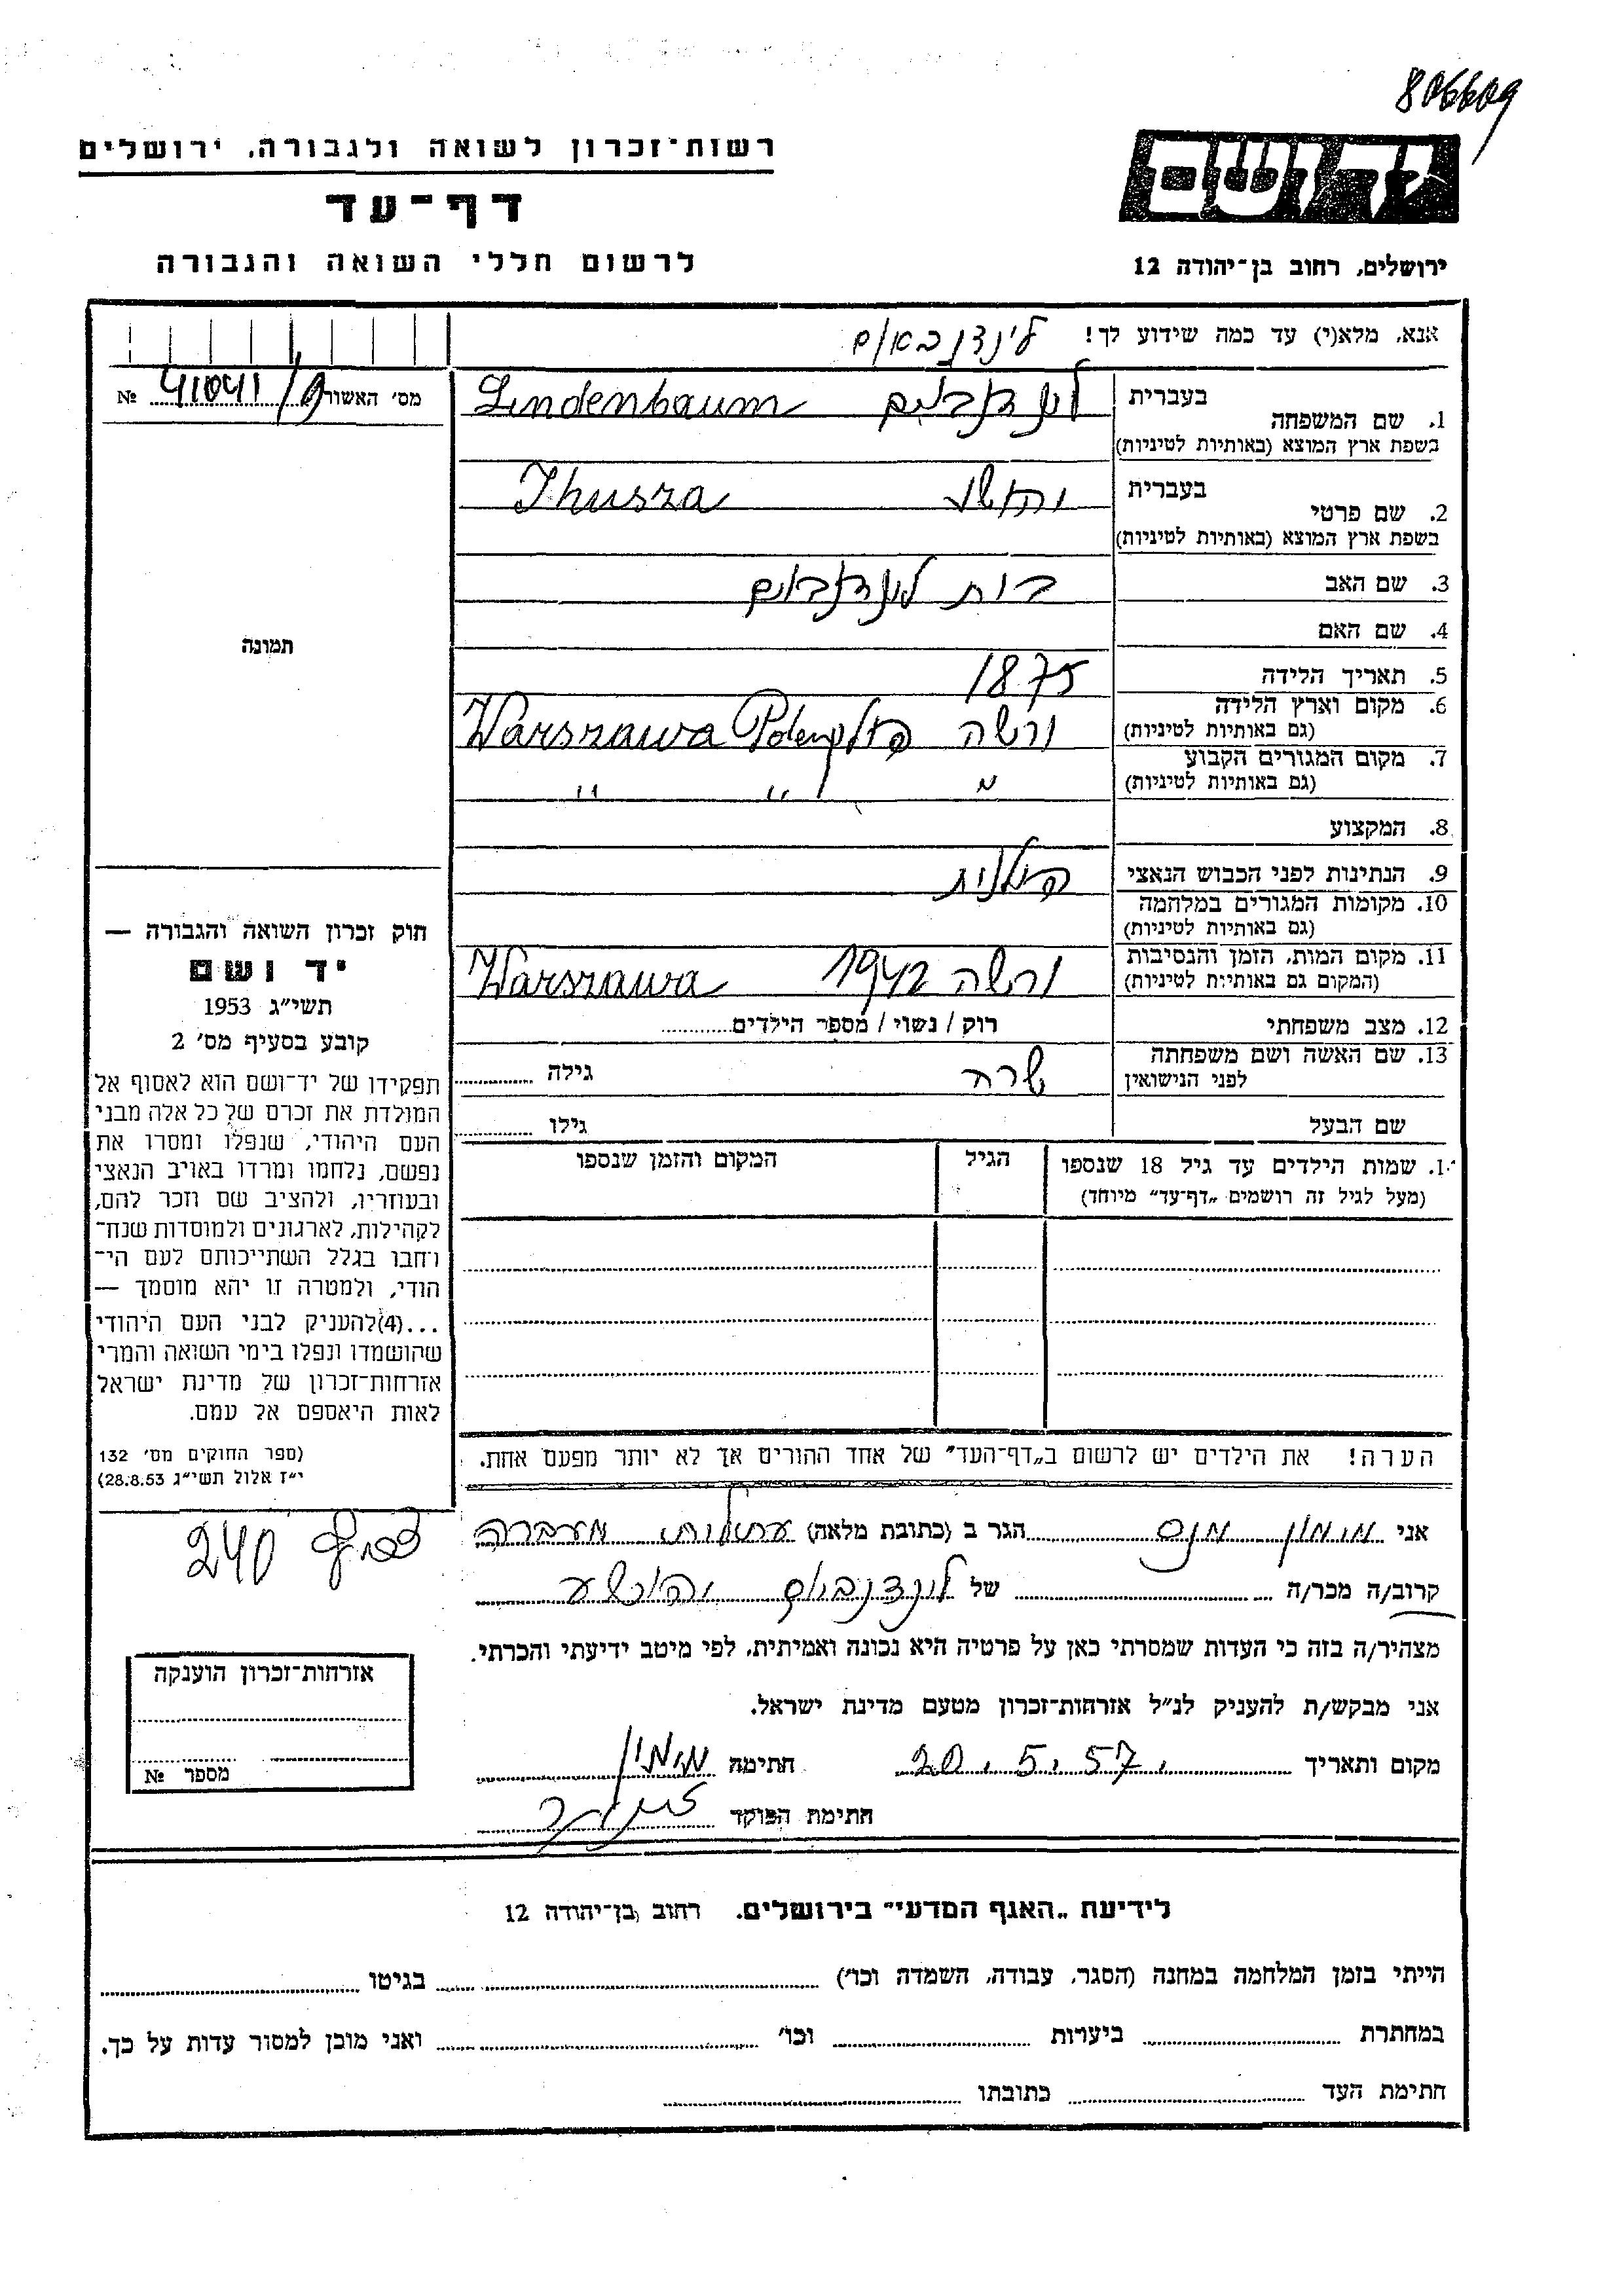 806609
רשות־זכרון לשואה ולגבורה, ירושלים
דף־עד
לרשום חללי השואה והגבורה
יד ושם
ירושלים, רחוב בן־יהודה 12
אנא, מלא(י) עד כמה שידוע לך!
לינדנבאום
מס׳ האשור 41041/ №
1. שם המשפחה
בעברית
בשפת ארץ המוצא (באותיות לטיניות)
Lindenbaum
2. שם פרטי
בעברית
בשפת ארץ המוצא (באותיות לטיניות)
Ihusza
3. שם האב
4. שם האם
5. תאריך הלידה
1875
6. מקום וארץ הלידה
(גם באותיות לטיניות)
ורשה Warszawa
7. מקום המגורים הקבוע
(גם באותיות לטיניות)
״ ״ ״
8. המקצוע
9. הנתינות לפני הכבוש הנאצי
פולנית
10. מקומות המגורים במלחמה
(גם באותיות לטיניות)
11. מקום המות, הזמן והנסיבות
(המקום גם באותיות לטיניות)
ורשה 1942 Warszawa
12. מצב משפחתי
רוק / נשוי / מספר הילדים
13. שם האשה ושם משפחתה
לפני הנישואין
שרה
גילה
שם הבעל
גילו
תמונה
חוק זכרון השואה והגבורה —
יד ושם
תשי״ג 1953
קובע בסעיף מס׳ 2
תפקידו של יד־ושם הוא לאסוף אל
המולדת את זכרם של כל אלה מבני
העם היהודי, שנפלו ומסרו את
נפשם, נלחמו ומרדו באויב הנאצי
ובעוזריו, ולהציב שם וזכר להם,
לקהילות, לארגונים ולמוסדות שנח־
רחבו בגלל השתייכותם לעם הי־
הודי, ולמטרה זו יהא מוסמך —
...(4)להעניק לבני העם היהודי
שהושמדו ונפלו בימי השואה והמרי
אזרחות־זכרון של מדינת ישראל
לאות היאספם אל עמם.
(ספר החוקים מס׳ 132
י״ז אלול תשי״ג 28.8.53)
1. שמות הילדים עד גיל 18 שנספו
(מעל לגיל זה רושמים „דף־עד״ מיוחד)
הגיל
המקום והזמן שנספו
הערה! את הילדים יש לרשום ב„דף־העד״ של אחד ההורים אך לא יותר מפעם אחת.
אני מימון הגר ב (כתובת מלאה) עתלית מעברה
קרוב/ה מכר/ה של לינדנבוים יהושע
מצהיר/ה בזה כי העדות שמסרתי כאן על פרטיה היא נכונה ואמיתית, לפי מיטב ידיעתי והכרתי.
אני מבקש/ת להעניק לנ״ל אזרחות־זכרון מטעם מדינת ישראל.
מקום ותאריך 20.5.57 חתימה מימון
חתימת הפוקד
240
אזרחות־זכרון הוענקה
מספר №
לידיעת „האגף המדעי״ בירושלים. רחוב בן־יהודה 12
הייתי בזמן המלחמה במחנה (הסגר, עבודה, השמדה וכו׳) בגיטו
במחתרת ביערות וכו׳ ואני מוכן למסור עדות על כך.
חתימת העד כתובתו